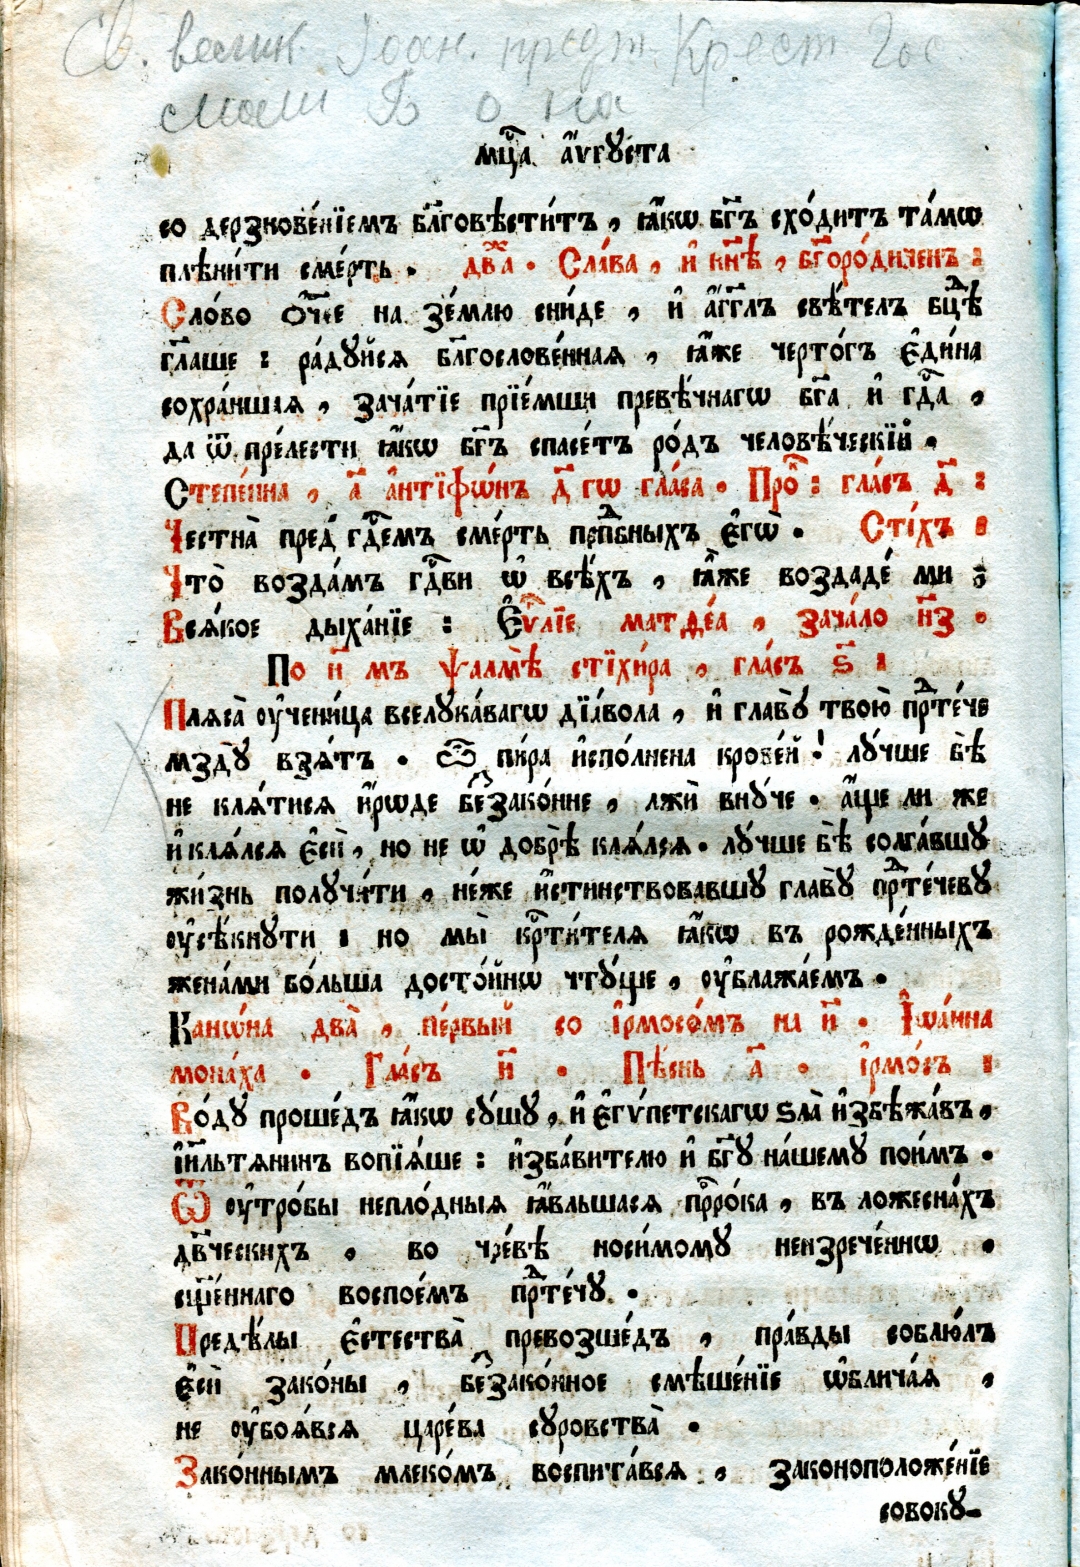 Св. велик. Іоан. предт. Крест Гос
моли Б о на
мц҃а а҆́ѵгꙋста
со дерзнове́нїемъ бл҃говѣсти́тъ , ꙗ҆́кѡ бг҃ъ схо́дитъ та́мѡ
плѣни́ти сме́рть . два҃ . Сла́ва , и҆ нн҃ѣ , бг҃оро́диченъ :
Сло́во ѻ҆́ч҃ее на зе́млю сни́де , и҆ а҆́гг҃лъ свѣ́телъ бц҃ѣ
гл҃аше : ра́дꙋйся бл҃гослове́нная , ꙗ҆́же черто́гъ є҆ди́на
сохра́ншая , зача́тїе прїе́мши превѣ́чнагѡ бг҃а и҆ гдⷭ҇а ,
да ѿ пре́лести ꙗ҆́кѡ бг҃ъ спасе́тъ ро́дъ человѣ́ческїй .
Степе́нна , а҃ а҆нтїфѡ́нъ д҃ гѡ гла́са . Про́ : гла́съ д҃ :
Честна̀ пред̾ гдⷭ҇емъ сме́рть прпⷣбныхъ є҆гѡ̀ . Сті́хъ :
Что̀ возда́мъ гдⷭ҇ви ѡ҆ всѣ́хъ , ꙗ҆́же воздаде́ ми ;
Вся́кое дыха́нїе : Є҆ѵⷢ҇лїе матѳе́а , зача́ло н҃з .
По н҃ мъ ѱалмѣ̀ стїхи́ра , гла́съ ѕ҃ :
Пляса̀ ᲂу҆чени́ца вселꙋка́вагѡ дїа́вола , и҆ главꙋ̀ твою̀ прⷣте́че
мздꙋ̀ взя́тъ . Ѿ пи́ра и҆спо́лнена крове́й ! лꙋ́чше бѣ̀
не кля́тися и҆́рѡде беззако́нне , лжѝ внꙋ́че . а҆́ще ли же
и҆ кля́лся є҆сѝ , но не ѡ҆ добрѣ̀ кля́лся . лꙋ́чше бѣ̀ солга́вшꙋ
жи́знь полꙋча́ти , не́же и҆́стинствовавшꙋ главꙋ̀ прⷣте́чевꙋ
ᲂу҆сѣ́кнꙋти : но мы̀ крⷭ҇ти́теля ꙗ҆́кѡ въ рожде́нныхъ
жена́ми бо́льша досто́йнѡ чтꙋ́ще , ᲂу҆блажа́емъ .
Канѡ́на два̀ , пе́рвый со і҆рмосо́мъ на и҃ . І҆ѡа́нна
мона́ха . Гла́съ и҃ . Пѣ́снь а҃ . і҆рмо́съ :
Во́дꙋ проше́дъ ꙗ҆́кѡ сꙋ́шꙋ , и҆ є҆гѵ́петскагѡ ѕла̀ и҆збѣжа́въ ,
і҆и҃льтянинъ вопїя́ше : и҆зба́вителю и҆ бг҃ꙋ на́шемꙋ пои́мъ .
Ѿ ᲂу҆тро́бы непло́дныя ꙗ҆́вльшася прⷪ҇ро́ка , въ ложесна́хъ
дв҃ческихъ , во чре́вѣ носи́момꙋ неизрече́ннѡ .
сщ҃е́ннаго воспое́мъ прⷣте́чꙋ .
Предѣ́лы є҆стества̀ превозше́дъ , пра́вды соблю́лъ
є҆сѝ зако́ны , беззако́нное смѣше́нїе ѡ҆бличая́ ,
не ᲂу҆боя́вся царе́ва сꙋровства̀ .
Зако́ннымъ млеко́мъ воспита́вся , законоположе́нїе
совокꙋ-